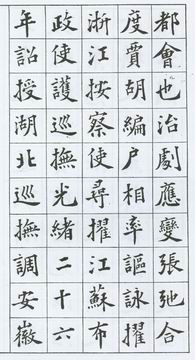 都會也治劇應變張弛合
度賈胡編戶相率謳詠擢
浙江按察使尋擢江蘇布
政使護巡撫光緒二十六
年詔授湖北巡撫調安徽